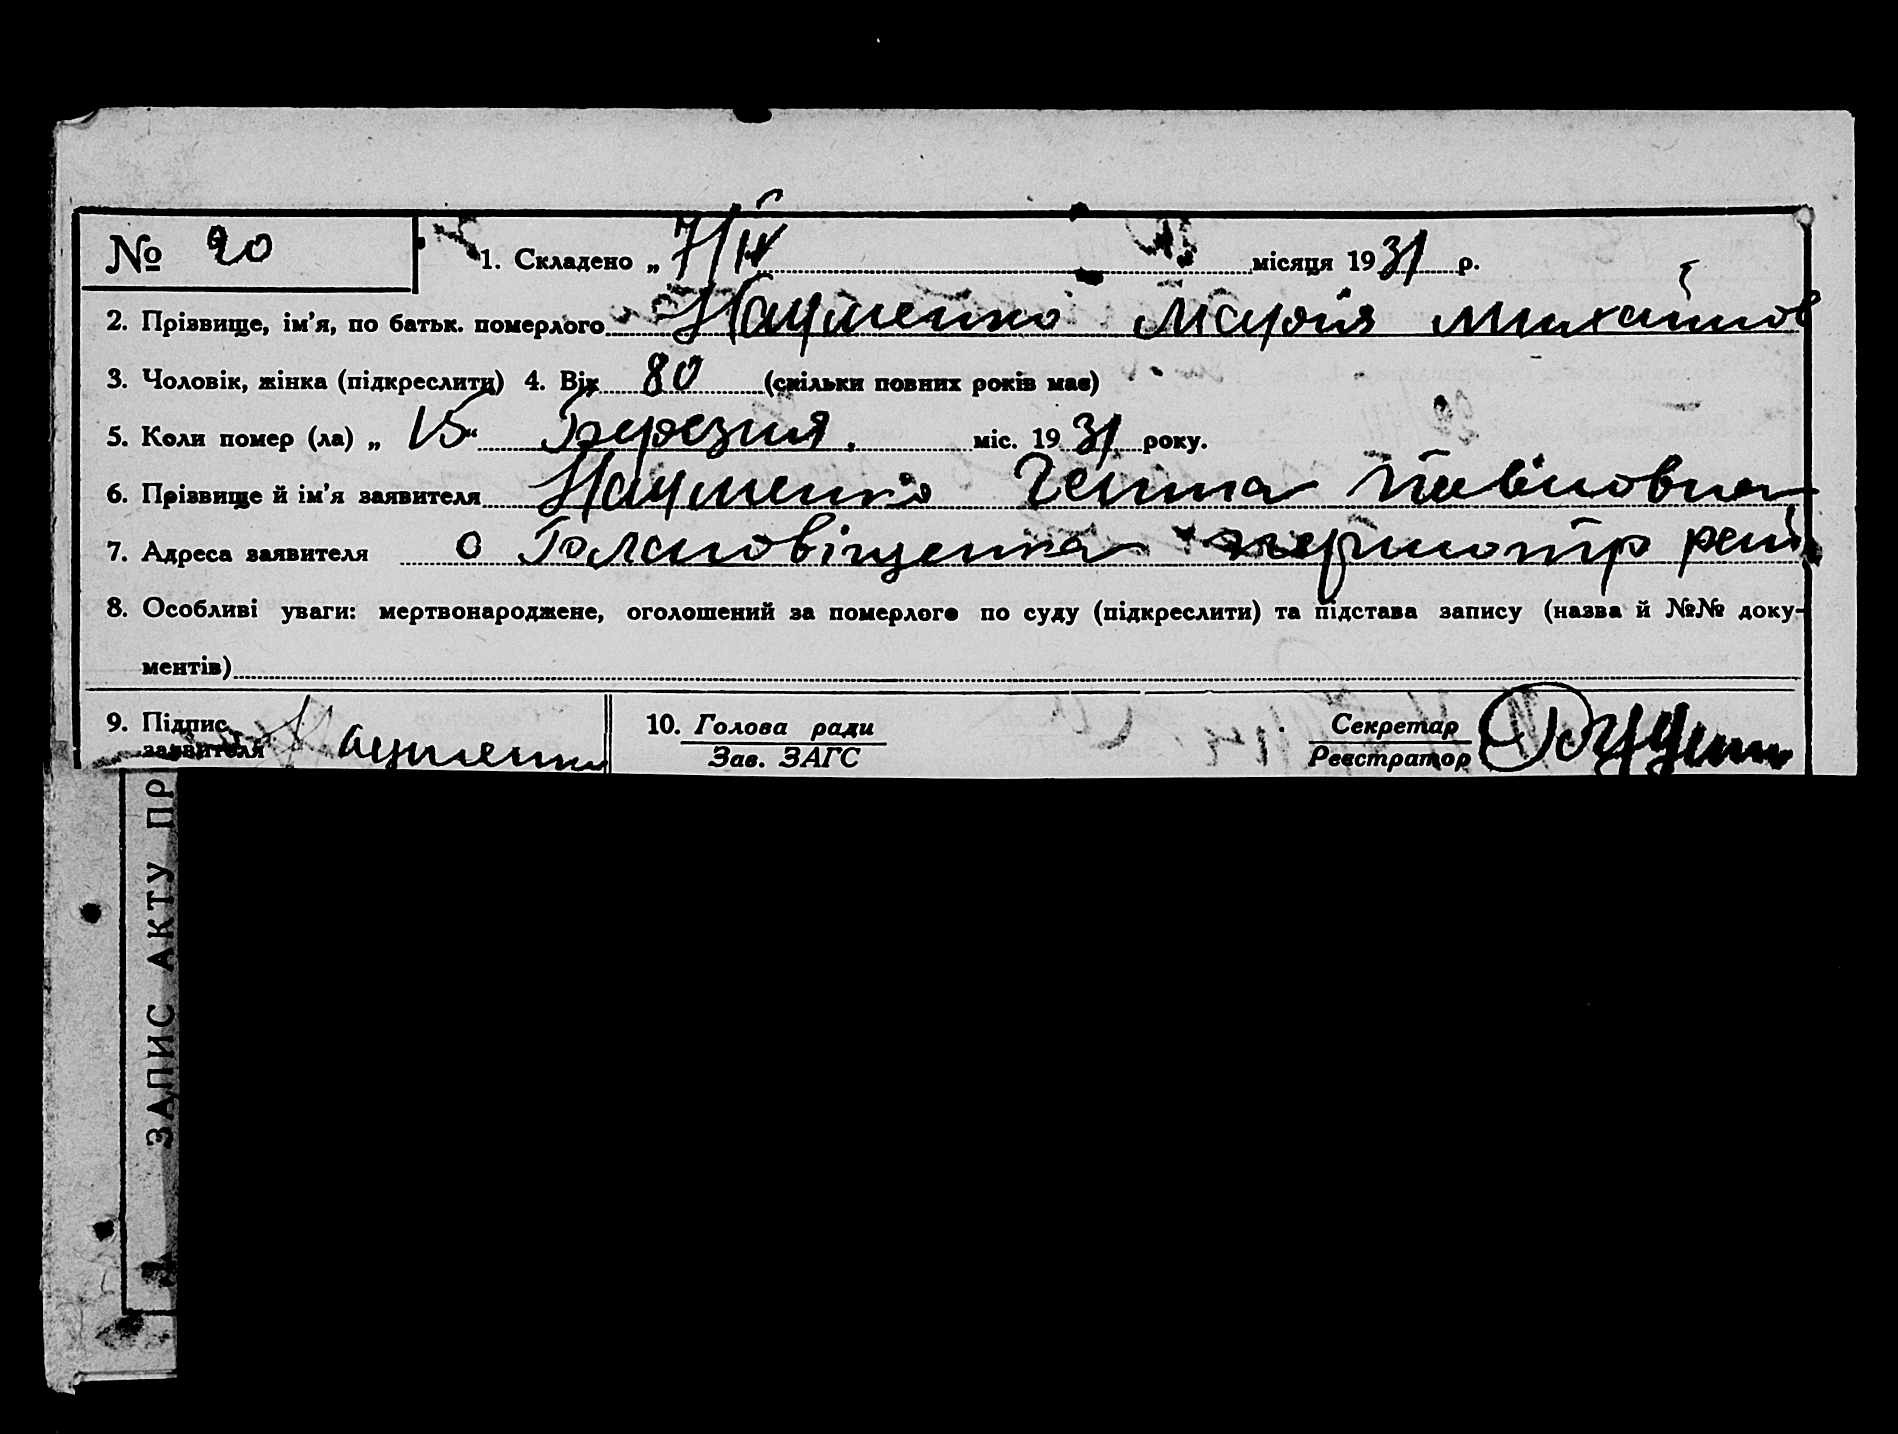 № 20
1. Складено „ 7/IV місяця 1931 р.
2. Прізвище, ім'я, по батьк. померлого Науменко Марія Михайлов
3. Чоловік, жінка (підкреслити) 4. Вік 80 (скільки повних років мав)
5. Коли помер (ла) „ 15 Березня міс. 1931 року.
6. Прізвище й ім'я заявителя Науменко
7. Адреса заявителя с
8. Особливі уваги: мертвонароджене, оголошений за померлого по суду (підкреслити) та підстава запису (назва й №№ доку-
ментів)
9. Підпис заявителя Науменко
10. Голова ради
Зав. ЗАГС
Секретар
Реєстратор
ЗАПИС АКТУ ПР